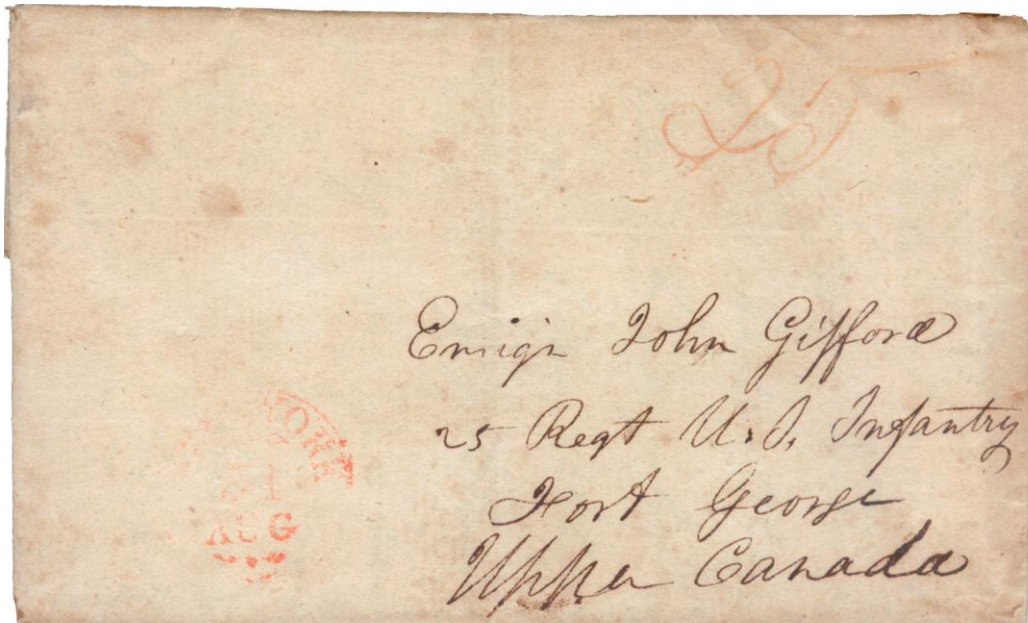 25
Ensign John Gifford
25 Regt U. S. Infantry
Fort George
Upper Canada
YORK
AUG